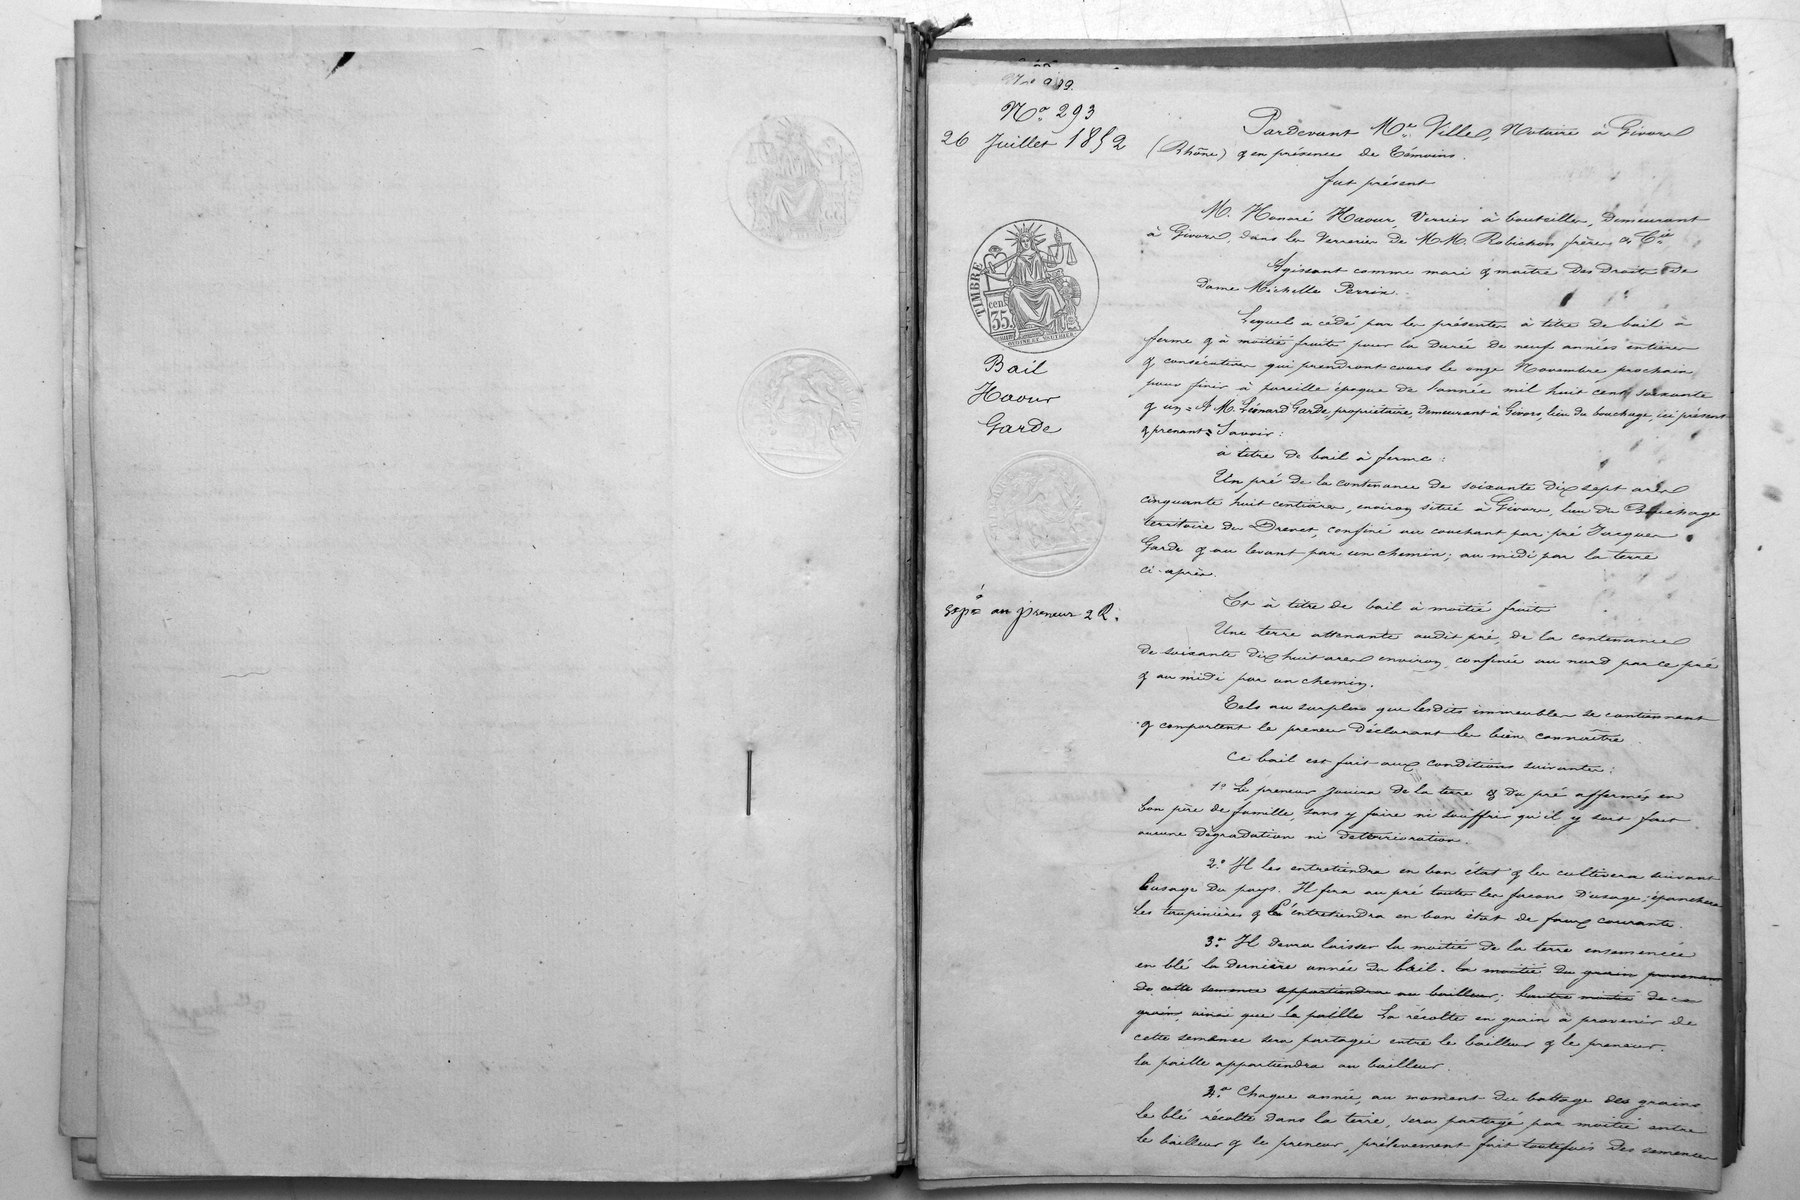 N° 293
26 Juillet 1852
TIMBRE
cent.
35.
Bail
Haour
Garde
expé au preneur 2 R.
Pardevant Me Ville, Notaire à Givors
(Rhône) & en présence de témoins.
fut présent
M. Honoré Haour, Verrier à bouteilles, demeurant
à Givors, dans les Verreries de MM. Robichon frères & Cie
Agissant comme mari & maître des Droits de
Dame Michelle Perrin.
Lequel a cédé par les présentes à titre de bail à
ferme & à moitié fruits pour la durée de neuf années entières
& consécutives qui prendront cours le onze Novembre prochain
pour finir à pareille époque de l'année mil huit cent soixante
& un = A M. Léonard Garde, propriétaire, demeurant à Givors, lieu du bouchage, ici présent
& prenant = Savoir :
à titre de bail à ferme :
Un pré de la contenance de soixante dix sept ares
cinquante huit centiares, environ situé à Givors, lieu du Bouchage
territoire du Drevet, confiné au couchant par pré Jacques
Garde & au levant par un chemin ; au midi par la terre
ci-après.
Et à titre de bail à moitié fruits
Une terre attenante audit pré, de la contenance
de soixante dix huit ares environ, confinée au nord par ce pré
& au midi par un chemin.
Tels au surplus que lesdits immeubles se contiennent
& comportent le preneur déclarant les bien connaître.
Ce bail est fait aux conditions suivantes :
1° Le preneur jouira de la terre & du pré affermés en
bon père de famille, sans y faire ni souffrir qu'il y soit fait
aucune dégradation ni détérioration.
2° Il les entretiendra en bon état & les cultivera suivant
l'usage du pays. Il fera au pré toutes les façons d'usage ; épanchera
les taupinières & l'entretiendra en bon état de faux courante.
3° Il devra laisser la moitié de la terre ensemencée
en blé la dernière année du bail. la moitié du grain provenant
de cette semence appartiendra au bailleur ; l'autre moitié de ce
grain, ainsi que la paille La récolte en grain à provenir de
cette semence sera partagée entre le bailleur & le preneur.
la paille appartiendra au bailleur.
4° Chaque année, au moment du battage des grains
le blé récolté dans la terre, sera partagé par moitié entre
le bailleur & le preneur, prélèvement fait toutefois des semences